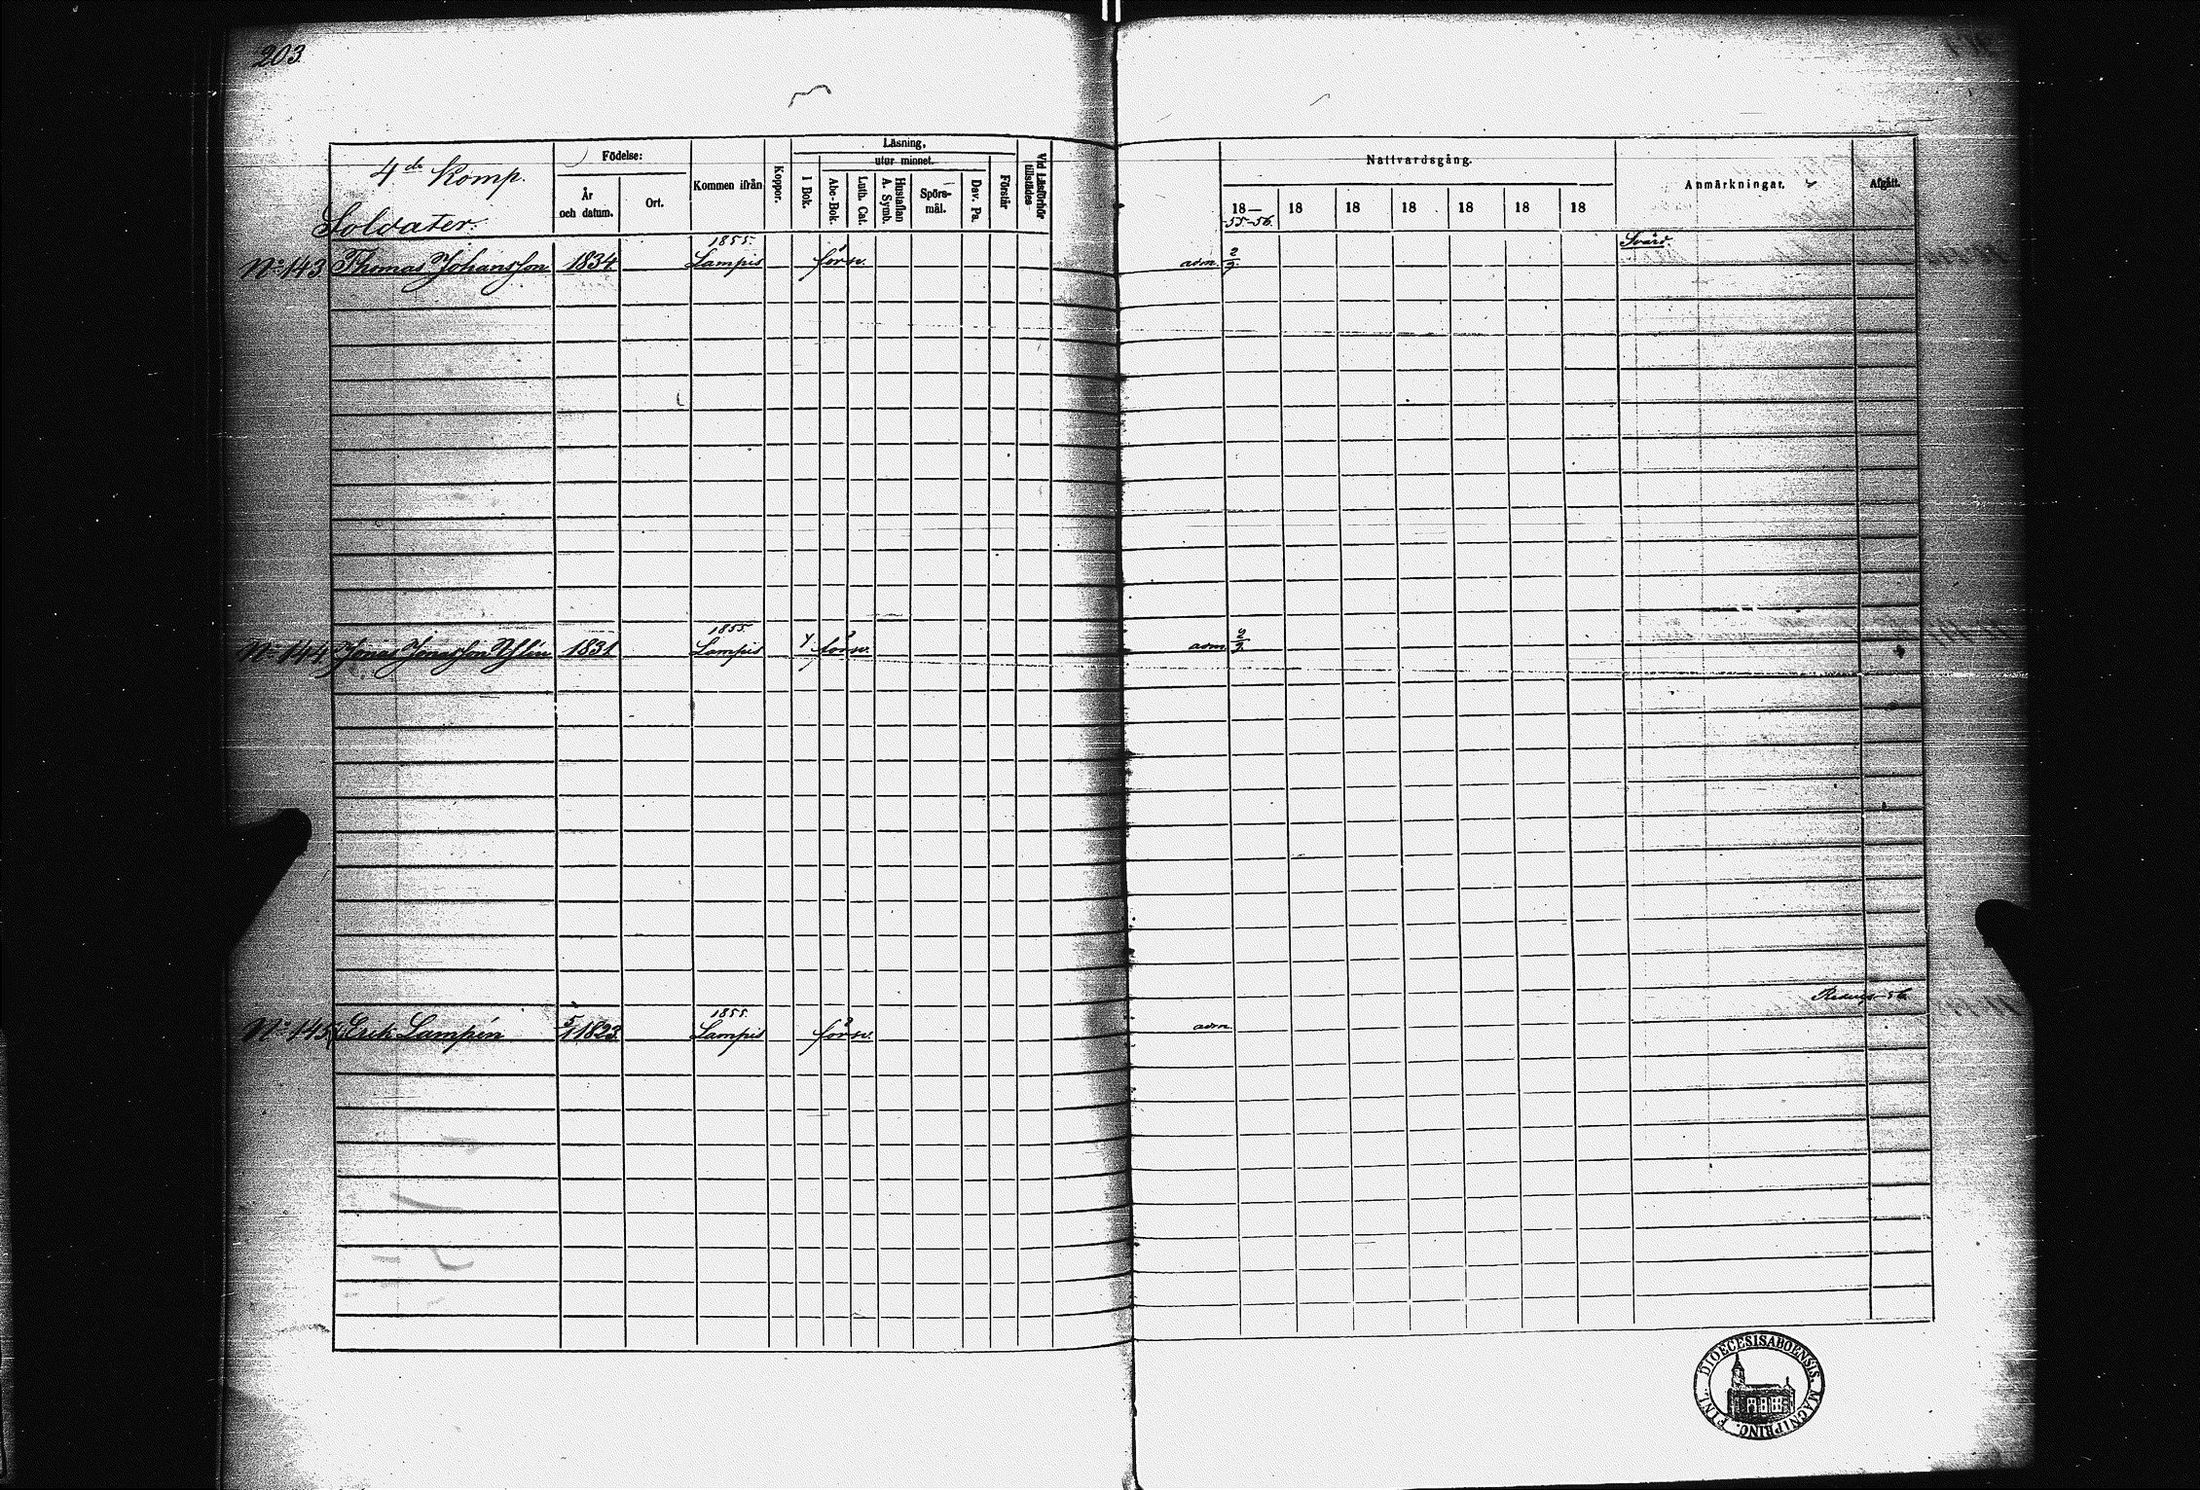 203.
4de Komp.
Soldater.
Födelse:
År
och datum.
Ort.
Kommen ifrån
Koppor.
Läsning,
utur minnet.
I Bok.
Abc-Bok.
Luth. Cat.
Hustaflan
A. Symb.
Spörs-
mål.
Dav. Ps.
Förstår
Vid Läsförhör
tillstädes
Nattvardsgång.
18— 18 18 18 18 18 18
55-56.
Anmärkningar.
Afgått.
1855. Svärd.
No 143 Thomas Johansson 1834 Lampis försv. adm. 2/9.
1855.
No 144 Jonas Jonasson 1831 Lampis försv. adm. 2/9.
1855.
No 145 Erik Lampén 5/1 1823. Lampis försv. adm.
FINL. DIOECESIS ABOENSIS. MAGNI PRINC.